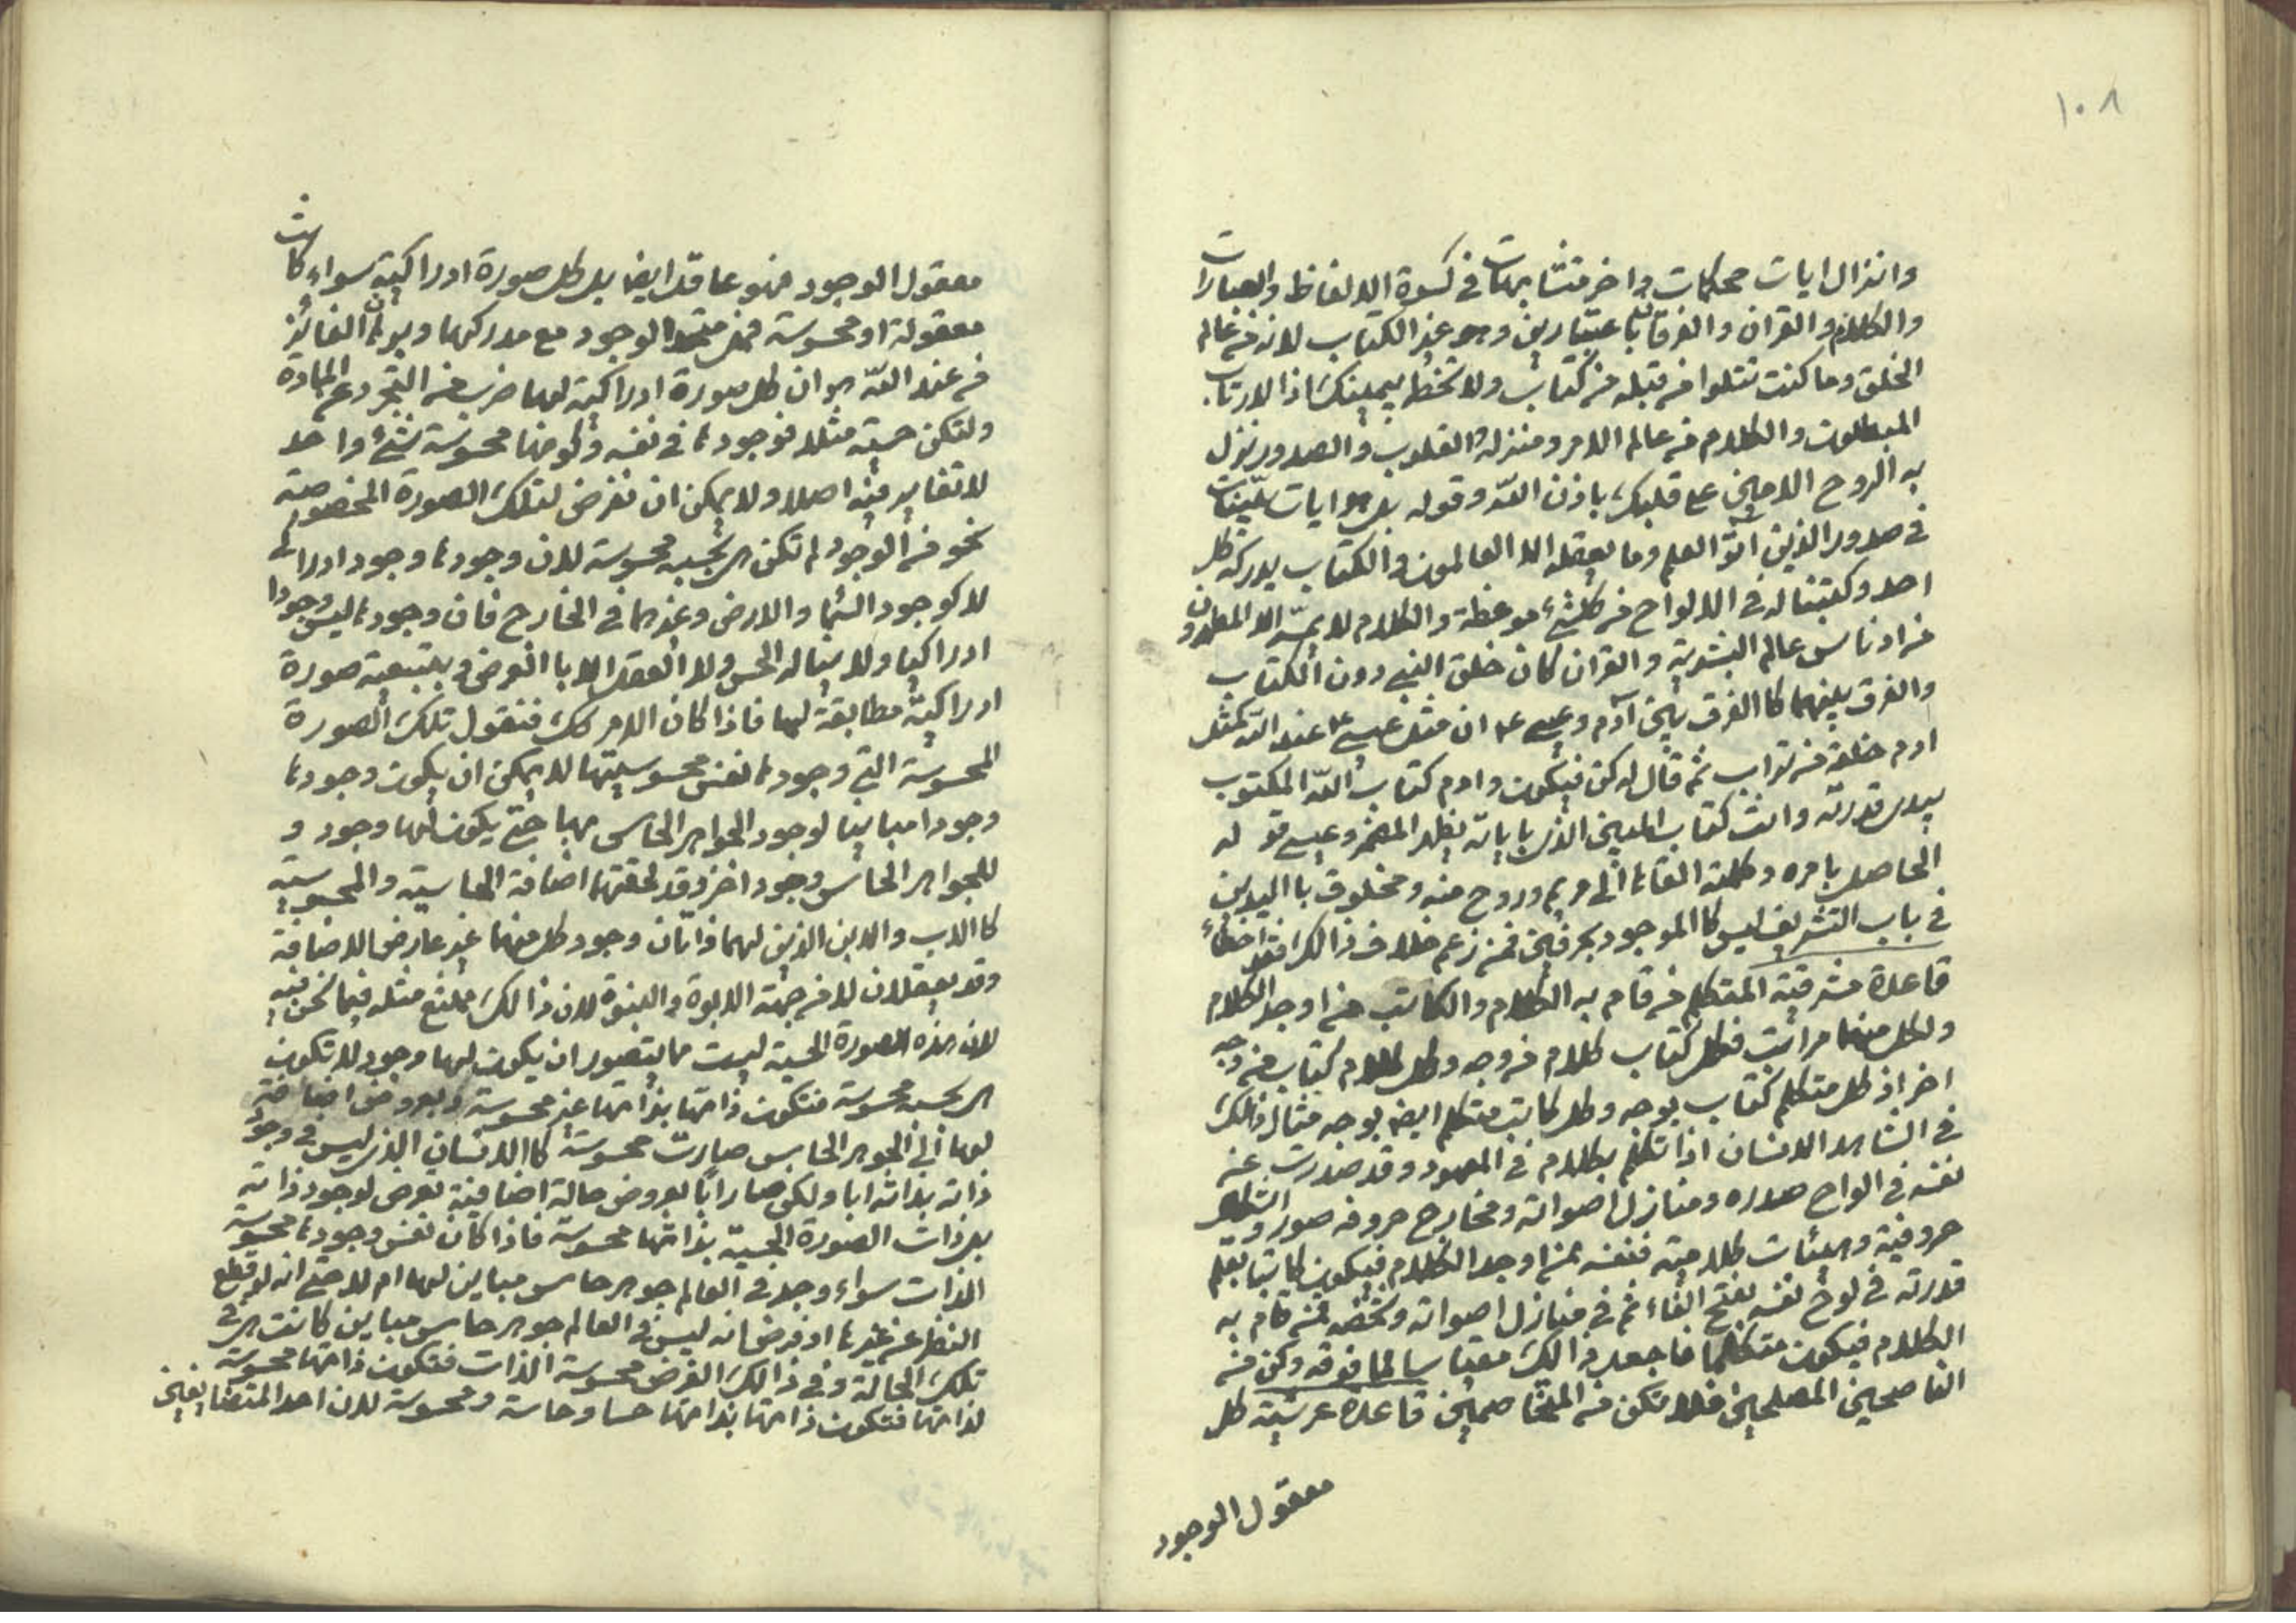 ١٠٨
وانزال ايات محكمات واخر متشابهات في كسوة الالفاظ والعبارات
والكلام والقران والفرقان باعتبارين وهو غير الكتاب لانه من عالم
الخلق وما كنت تتلوا من قبله من كتاب ولا تخطه بيمينك اذا لارتاب
المبطلون والكلام من عالم الامر ومنزله القلوب والصدور نزل
به الروح الامين على قلبك باذن الله وقوله بل هو ايات بينات
في صدور الذين اتوا العلم وما يعقله الا العالمون والكتاب يدركه كل
احد وكتبنا له في الالواح من كلشئ موعظة والكلام لا يمسه الا المطهرون
من ادناس عالم البشرية والقران كان خلق النبي دون الكتاب
والفرق بينهما كاالفرق بين آدم وعيسى ع ان مثل عيسى ع عند الله كمثل
ادم خلقه من تراب ثم قال له كن فيكون وادم كتاب الله المكتوب
بيدى قدرته وانت كتاب المبين الذى باياته يظهر المضمر وعيسى قو له
الحاصل بامره وكلمته القاها الى مريم وروح منه ومخلوق باا اليدين
في باب التشريف ليس كاالموجود بحرفين فمن زعم خلاف ذالك فقد اخطاء
قاعدة مشرقية المتكلم من قام به الكلام والكاتب من اوجد الكلام
ولكل منهما مراتب فكل كتاب كلام من وجه وكل كلام كتاب من وجه
اخر اذ كل متكلم كتاب بوجه وكل كاتب متكلم ايضا بوجه مثال ذلك
في الشاهد الانسان اذا تكلم بكلام في المعهود وقد صدرت عنه
نفسه في الواح صدره ومنازل اصواته ومخارج حروفه صور و
حروفية وهيئات كلامية فنفسه ممن اوجد الكلام فيكون كاتبا بقلم
قدرته في لوح نفسه بفتح الفاء ثم في منازل اصواته وشخصه ممن قام به
الكلام فيكون متكلما فاجعل ذالك مقياسا لما فوقه وكن من
الناصحين المصلحين فلا تكن من المتخاصمين قاعدة عرشية كل
معقول الوجود
معقول الوجود فهو عاقل ايضا بل كل صورة ادراكية سواء كانت
معقولة او محسوسة فهى متحد الوجود مع مدركها وبرهانه الفائز
من عند الله هو ان كل صورة ادراكية لها ضرب من التجرد عن المادة
ولتكن حسية مثلا فوجودها في نفسه وكونها محسوسة شئ واحد
لا تغاير فيه اصلا ولا يمكن ان نفرض لتلك الصورة المخصوصة
نحو من الوجود لم تكن هى بحسبه محسوسة لان وجودها وجود ادراكى
لا كوجود السماء والارض وغيرهما في الخارج فان وجودها ليس وجودا
ادراكيا ولا يناله الحس ولا العقل الا باالعرض وبتبعية صورة
ادراكية مطابقة لها فاذا كان الامر كك فنقول تلك الصورة
المحسوسة التي وجودها نفس محسوسيتها لا يمكن ان يكون وجودها
وجودا مباينا لوجود الجواهر الحاس بها حتى يكون لها وجود و
للجواهر الحاس وجود اخر وقد لحقتهما اضافة الحاسية والمحسوسية
كاالاب والابن الذين لهما ذاتان وجود كل منهما غير عارض الاضافة
وقد يعقلان لا من جهة الابوة والبنوة لان ذالك ممتنع مثله فيما نحن فيه
لان هذه الصورة الحسية ليست مما يتصور ان يكون لها وجود لا تكون
هى بحسبه محسوسة فتكون ذاتها بذاتها غير محسوسة وبعروض اضافة
لها الى الجوهر الحاس صارت محسوسة كاالانسان الذى ليس في وجود
ذاته بذاته ابا ولكن صار ابا بعروض حالة اضافية تعرض لوجود ذاته
بل ذات الصورة الحسية بذاتها محسوسة فاذا كان نفس وجودها محسوسة
الذات سواء وجد في العالم جوهر حاس مباين لها ام لا حتى انه لو قطع
النظر عن غيرها او فرض انه ليس في العالم جوهر حاس مباين كانت هى في
تلك الحالة وفي ذالك الفرض محسوسة الذات فتكون ذاتها محسوسة
لذاتها فتكون ذاتها بذاتها حسا وحاسة ومحسوسة لان احد المتضايفين